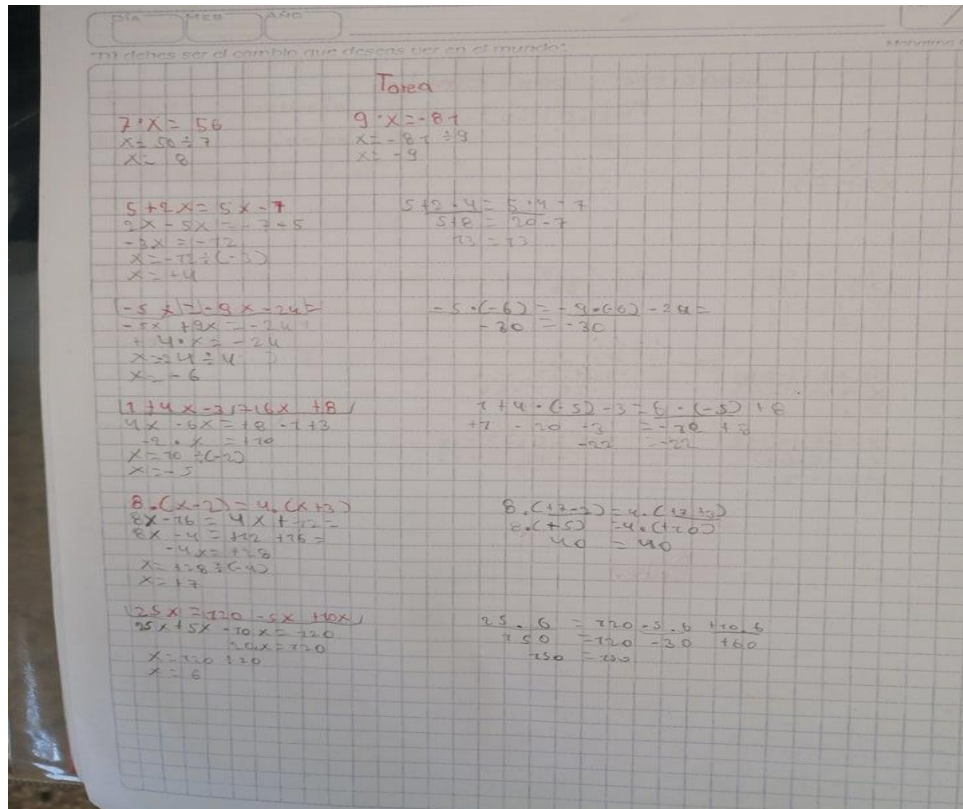 DÍA MES AÑO
"Tú debes ser el cambio que deseas ver en el mundo".
Tarea
7·x = 56
x = 56 ÷ 7
x = 8
9·x = -81
x = -81 ÷ 9
x = -9
5+2x = 5x-7
2x - 5x = -7-5
-3x = -12
x = -12 ÷ (-3)
x = +4
5+2·4 = 5·4-7
5+8 = 20-7
13 = 13
-5x = -9x-24 =
-5x +9x = -24
+4·x = -24
x = 24 ÷ 4
x = -6
-5·(-6) = -9·(-6) -24 =
-30 = -30
1+4x-3 = 6x +8
4x -6x = +8 -1+3
-2·x = +10
x = 10 ÷(-2)
x = -5
1+4·(-5)-3 = 6·(-5) +8
+1 -20 +3 = -30 +8
-22 = -22
8·(x-2) = 4·(x+3)
8x-16 = 4x+12 =
8x -4 = +12 +16 =
-4x = +28
x = +28÷(-4)
x = +7
8·(+5) = 4·(+10)
40 = 40
25x = 120 -5x +10x
25x+5x -10x = 120
20x = 120
x = 120 ÷20
x = 6
25·6 = 120-5·6 +10·6
150 = 120 -30 +60
150 = 150